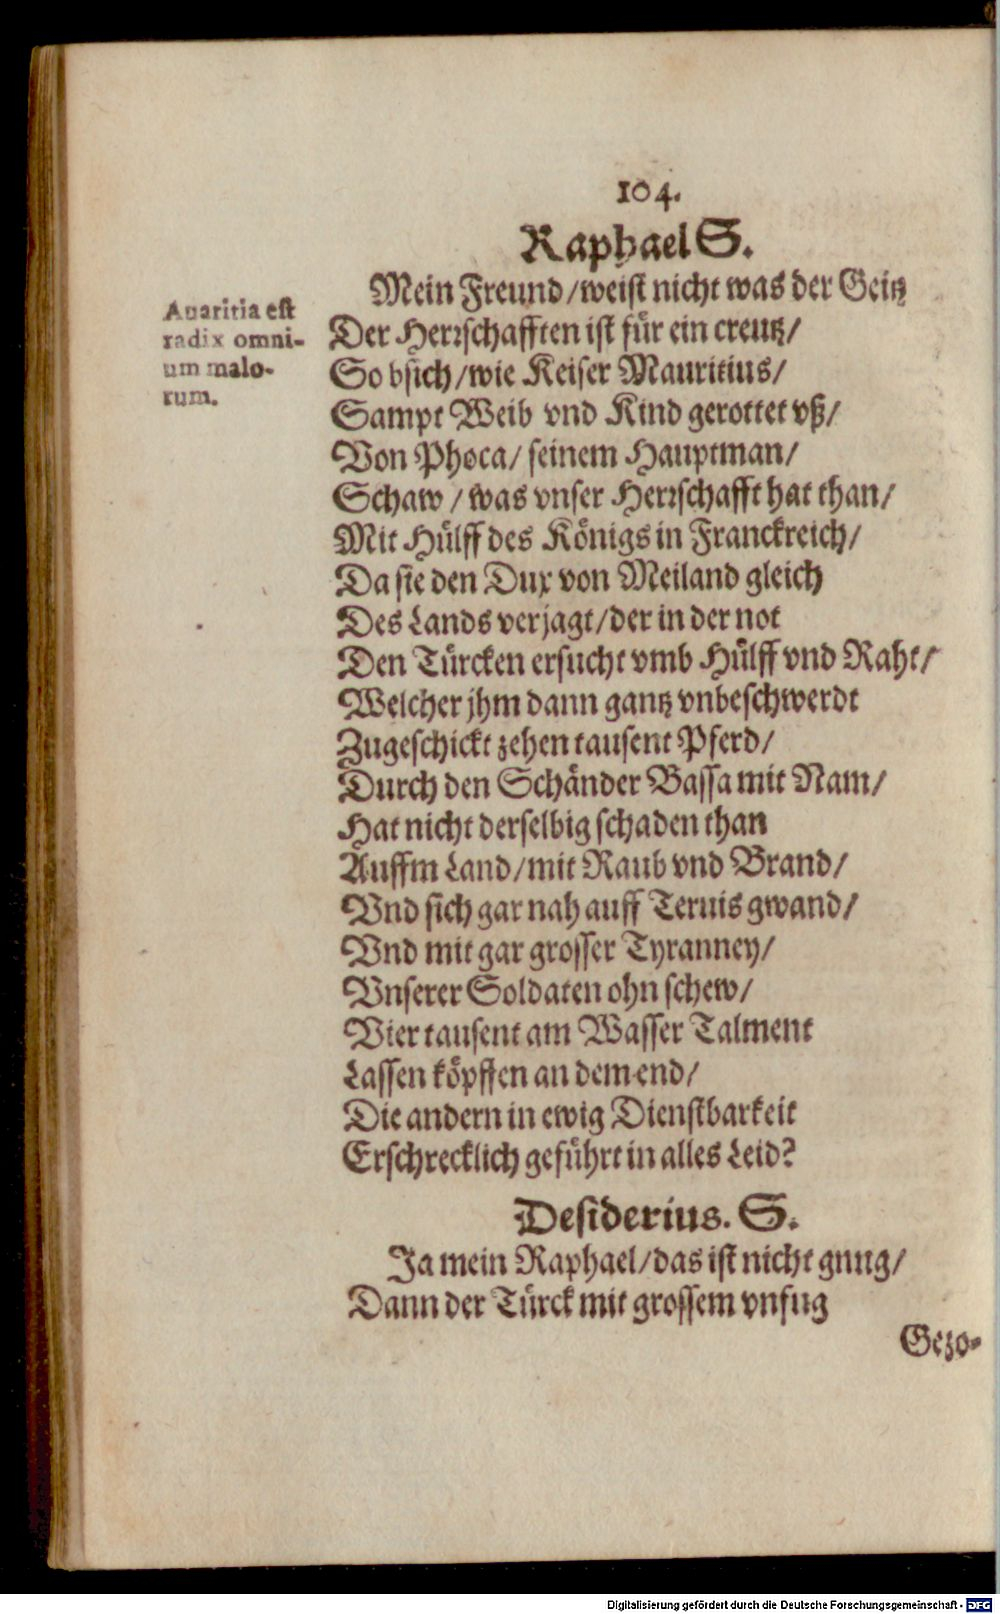 104.
Raphael S.
Mein Freund/weist nicht was der Geitz
Auaritia est
radix omni-
um malo-
rum.
Der Herrschafften ist für ein creutz/
So bsich/wie Keiser Mauritius/
Sampt Weib vnd Kind gerottet vß/
Von Phoca/ seinem Hauptman/
Schaw / was vnser Herrschafft hat than/
Mit Hülff des Königs in Franckreich/
Da sie den Dux von Meiland gleich
Des Lands verjagt/der in der not
Den Türcken ersucht vmb Hülff vnd Raht/
Welcher jhm dann gantz vnbeschwerdt
Zugeschickt zehen tausent Pferd/
Durch den Schänder Bassa mit Nam/
Hat nicht derselbig schaden than
Auffm Land/mit Raub vnd Brand/
Vnd sich gar nah auff Teruis gwand/
Vnd mit gar grosser Tyranney/
Vnserer Soldaten ohn schew/
Vier tausent am Wasser Talment
Lassen köpffen an dem end/
Die andern in ewig Dienstbarkeit
Erschrecklich geführt in alles Leid?
Desiderius. S.
Ja mein Raphael/das ist nicht gnug/
Dann der Türck mit grossem vnfug
Gezo-
Digitalisierung gefördert durch die Deutsche Forschungsgemeinschaft - DFG